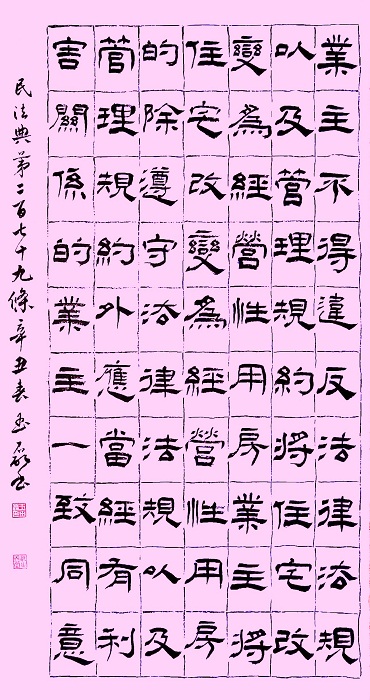 業主不得違反法律法規
以及管理規約將住宅改
變為經營性用房業主將
住宅改變為經營性用房
的除遵守法律法規以及
管理規約外應當經有利
害關係的業主一致同意
民法典第二百七十九條辛丑春磊书